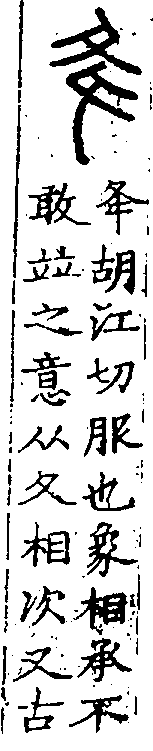 夅
夅胡江切服也象相承不
敢竝之意从夂相次又古